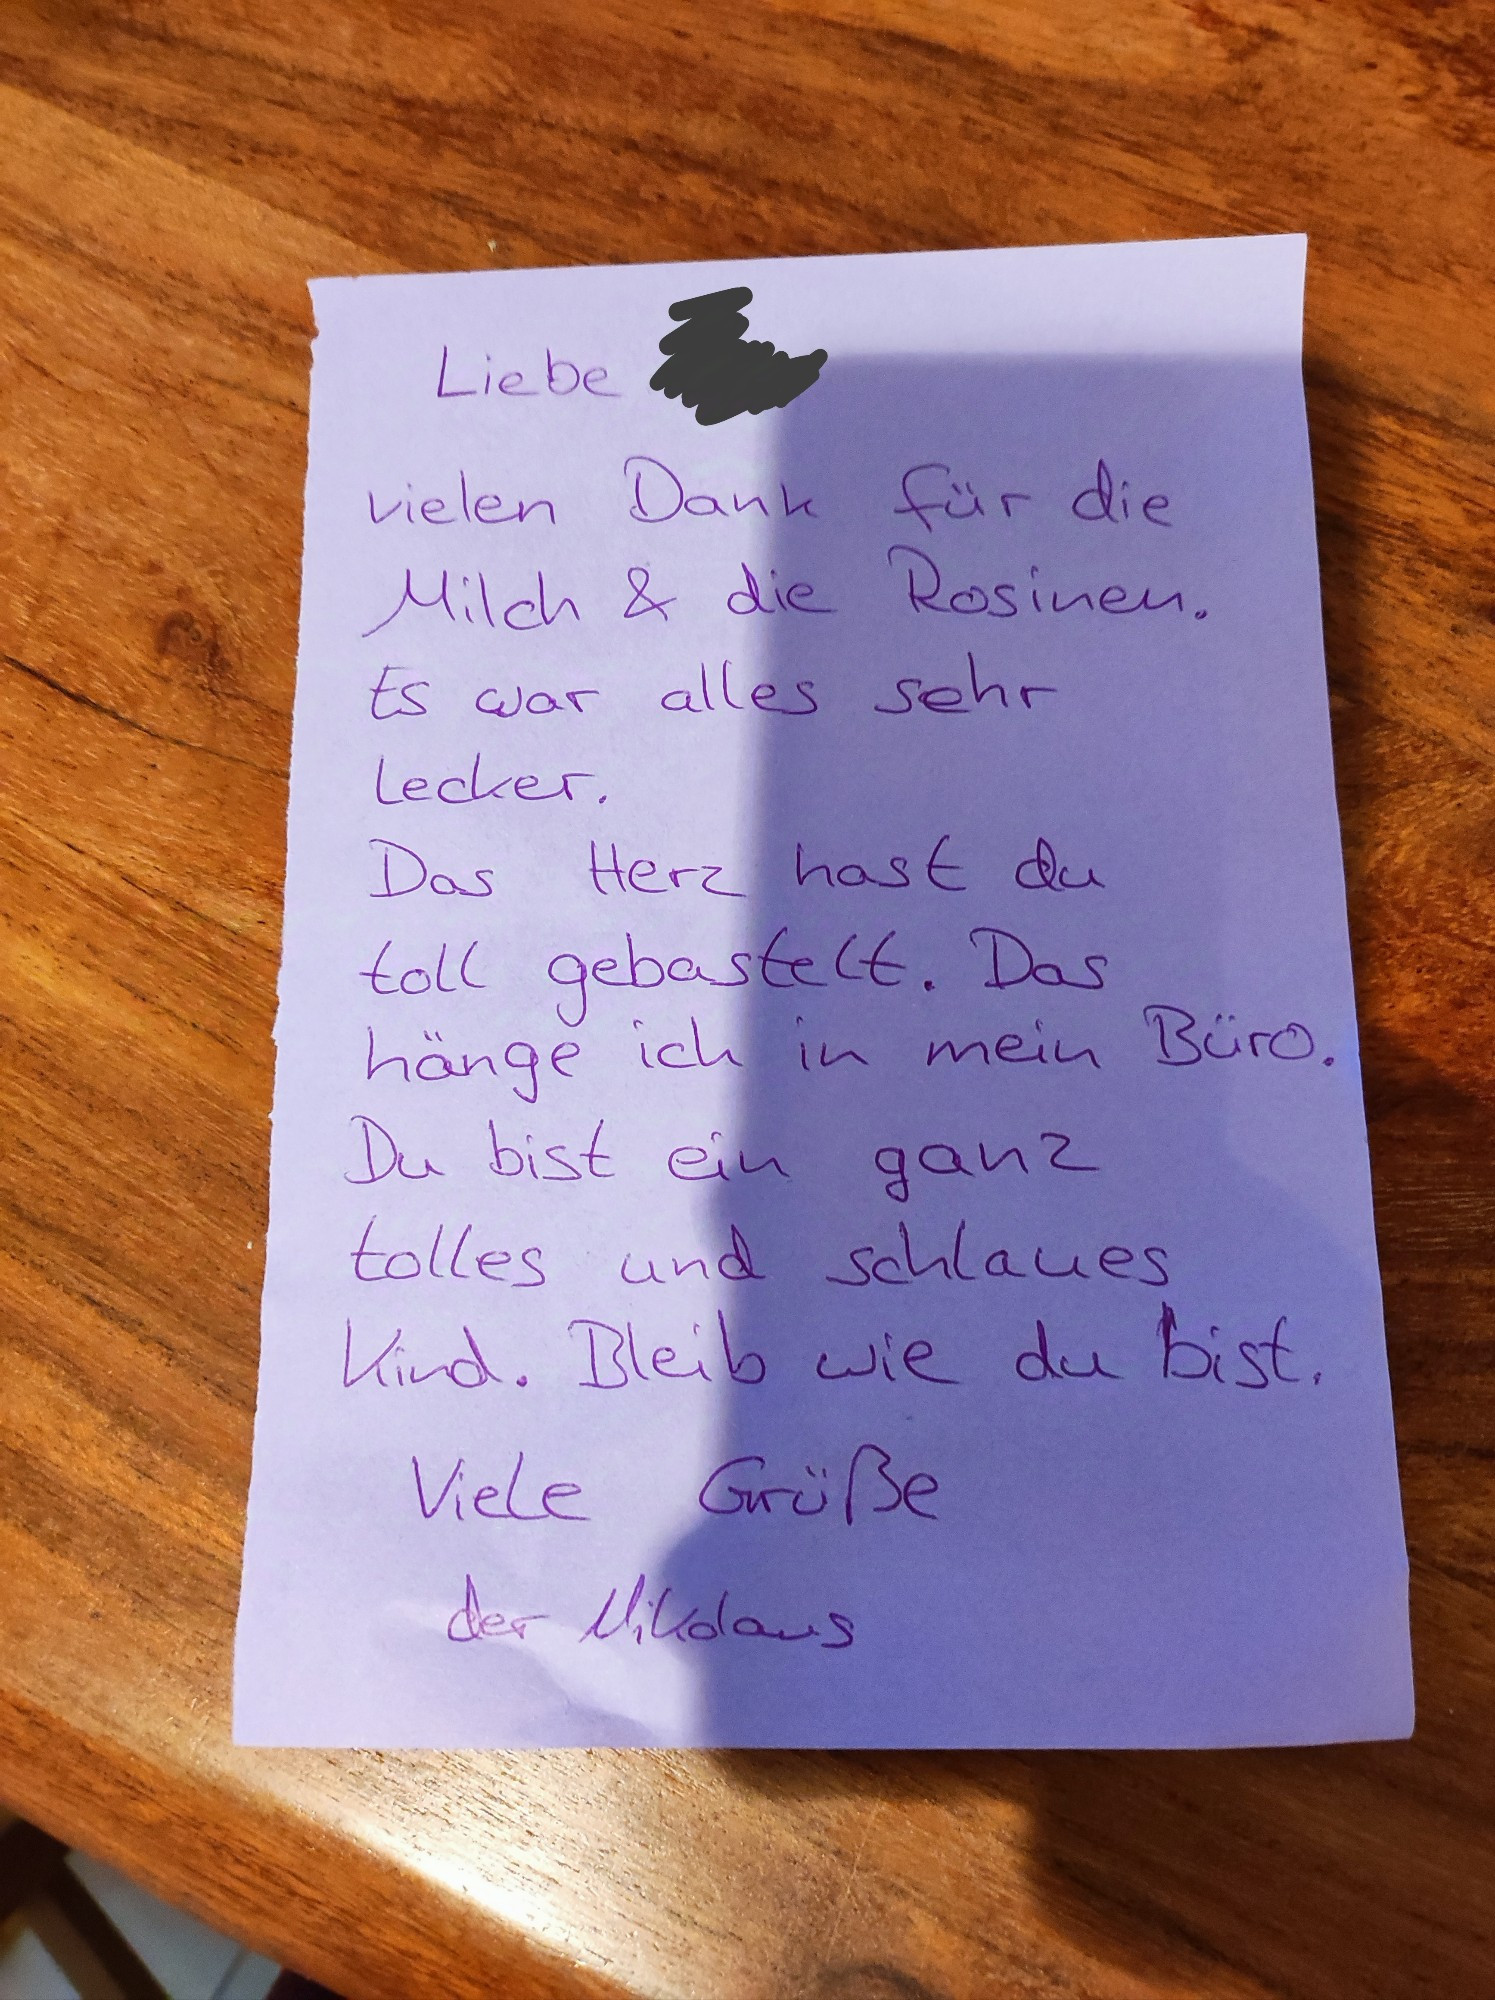 Liebe
vielen Dank für die
Milch & die Rosinen.
Es war alles sehr
lecker.
Das Herz hast du
toll gebastelt. Das
hänge ich in mein Büro.
Du bist ein ganz
tolles und schlaues
Kind. Bleib wie du bist.
Viele Grüße
der Nikolaus